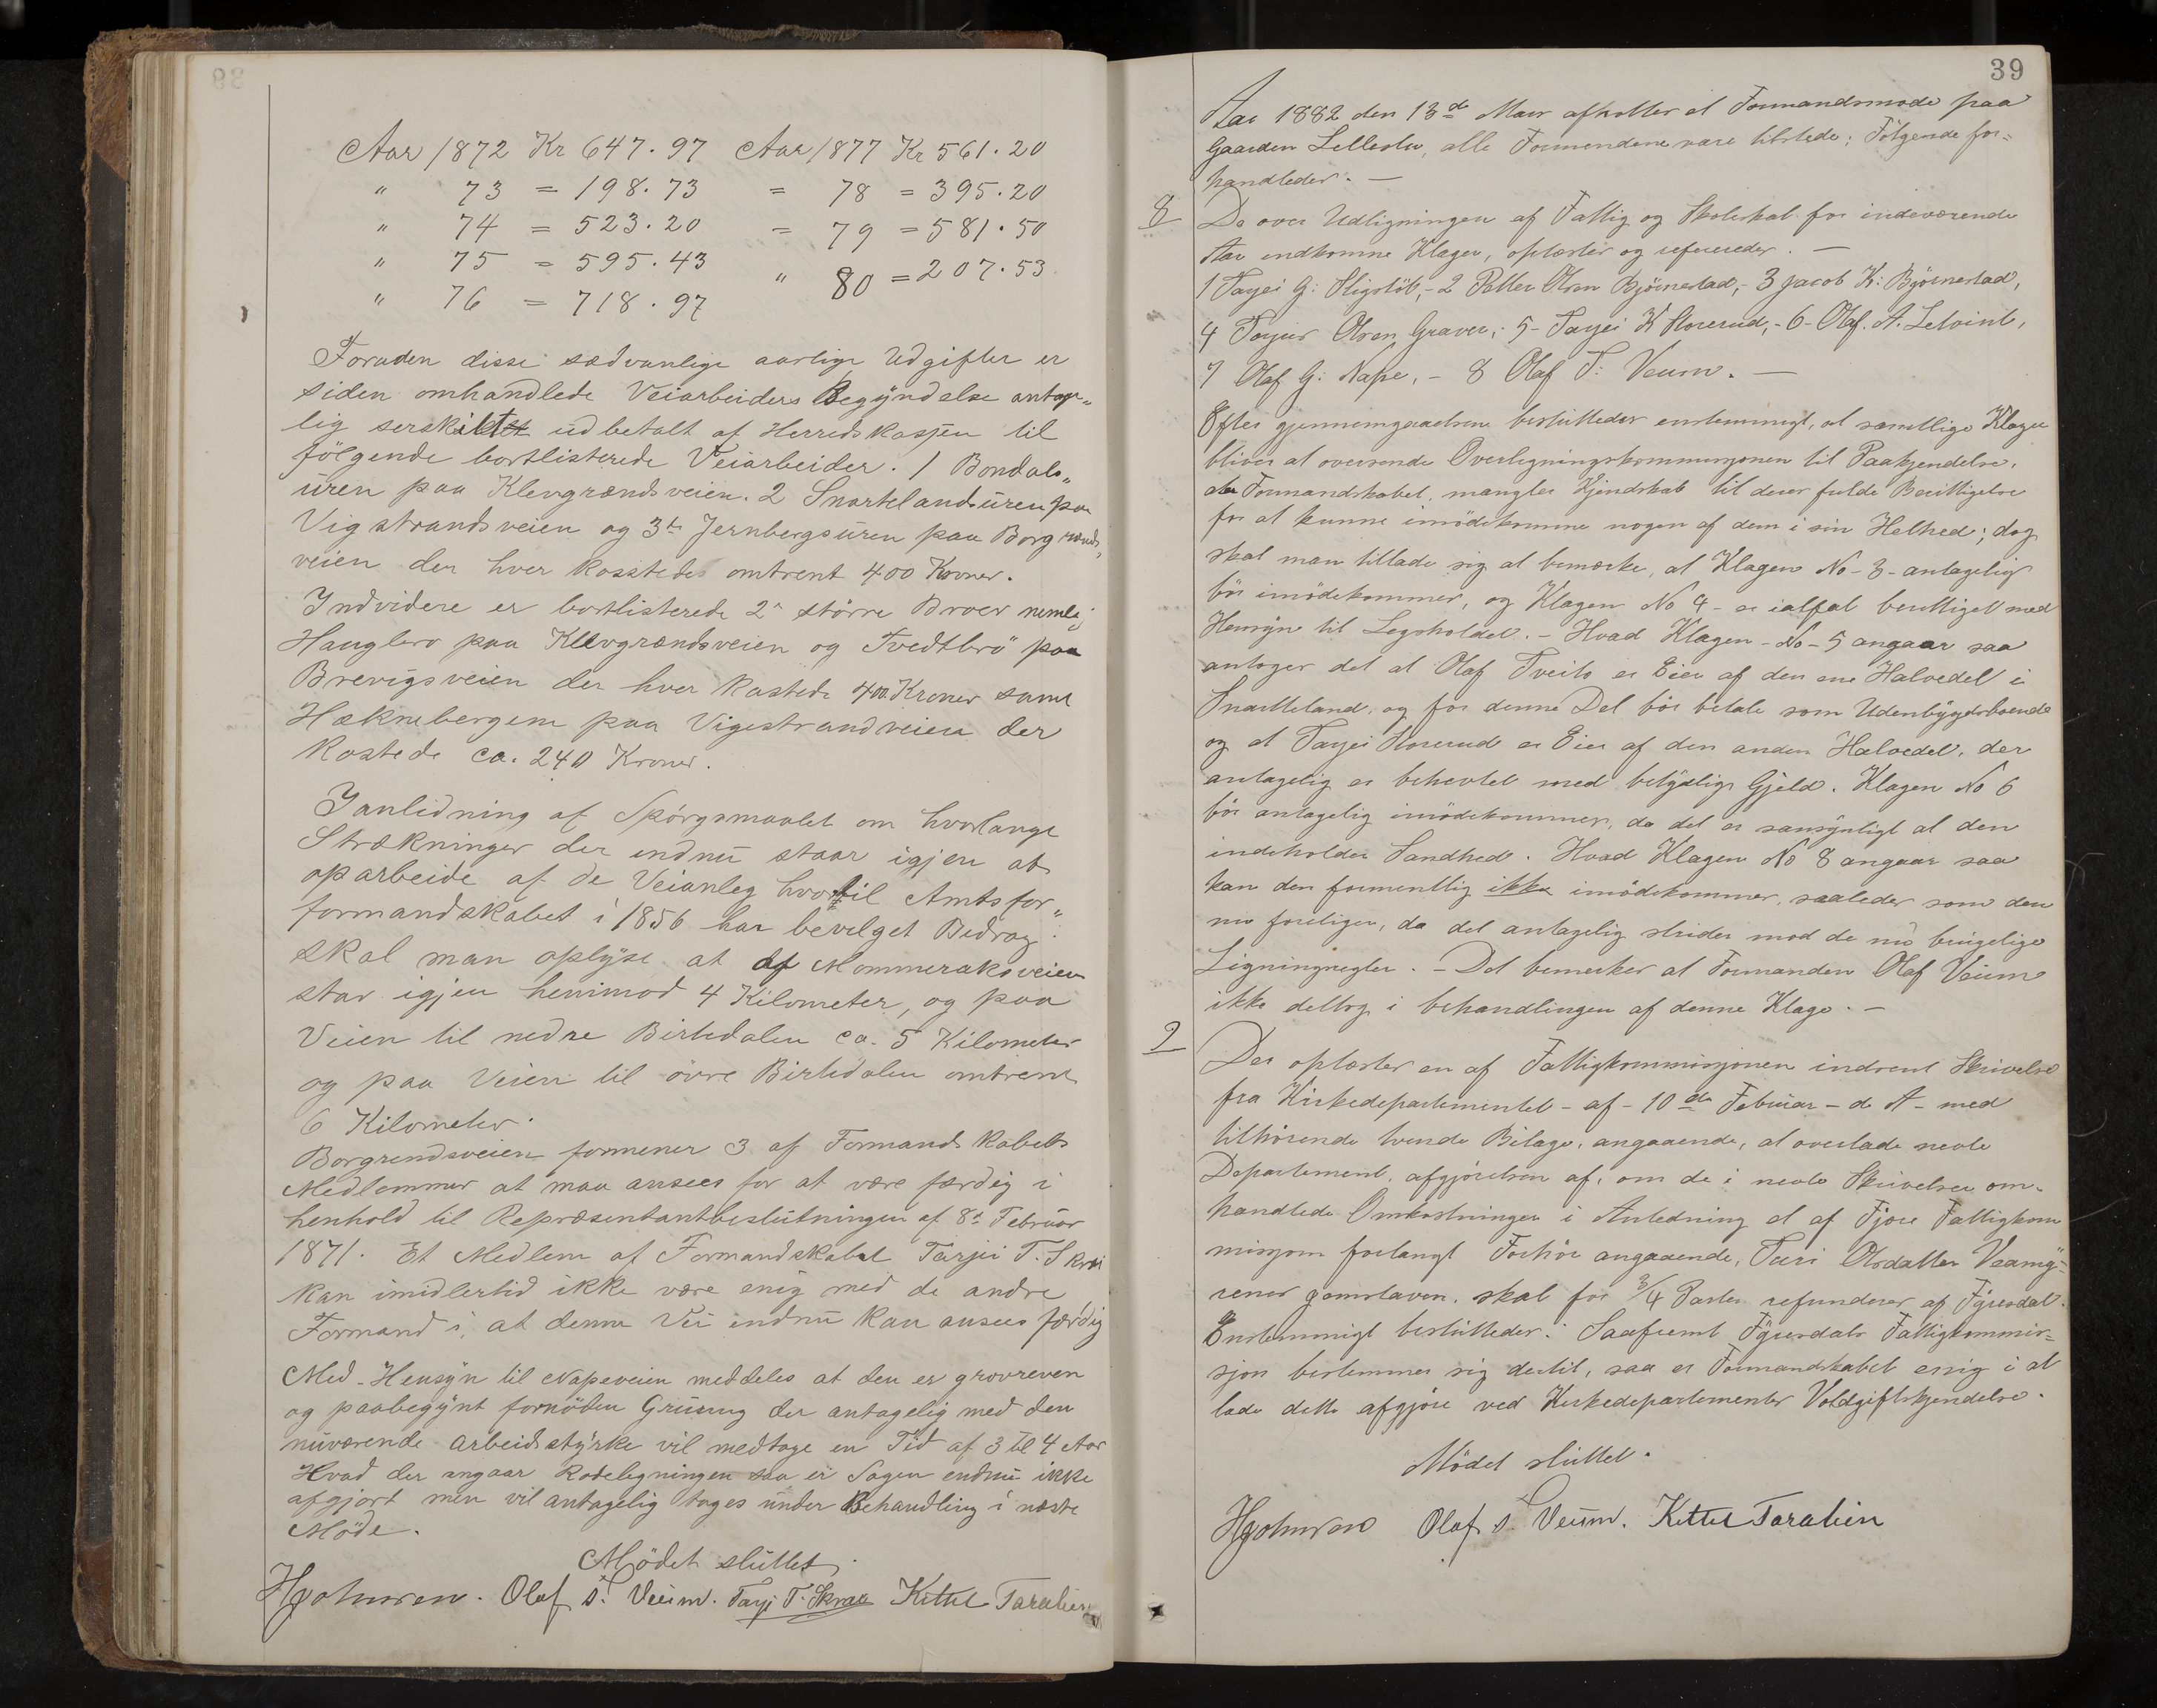 Aar 1872 Kr 647.97 Aar 1877 Kr 561.20
" 73 = 198.73 = 78 = 395.20
" 74 = 523.20 = 79 = 581.50
" 75 = 595.43 " 80 = 207.53
" 76 = 718.97
Foruden disse sædvanlige aarlige Udgifter er
siden omhandlede Veiarbeiders Begÿndelse antag„
lig serskilt udbetalt af Herredskassen til
fölgende bortlisterede Veiarbeider. 1 Bondals„
üren paa Klevgrændsveien. 2 Snartelandsüren paa
Vigstrandsveien og 3die Jernbergsüren paa Borgrænds„
veien der hver kosstedes omtrent 400 Kroner.
Indvidere er bortlisterede 2de större Broer nemlig
Haugbro paa Klevgrændsveien og Tvedtbro paa
Brevigsveien der hver kostede 400 Kroner samt
Hæknebergene paa Vigestrandveien der
kostede ca. 240 Kroner.
Ianlidning af Spörgsmaalet om hvorlange
Strækninger der endnü staar igjen at
oparbeide af de Veianleg hvortil Amtsfor„
formandskabet i 1856 har bevilget Bidrag
skal man oplÿse at af Mommeraksveien
star igjen henimod 4 Kilometer, og paa
Veien til nedre Birtedalen ca. 5 Kilometer
og paa Veien til övre Birtedalen omtrent
6 Kilometer.
Borgrendsveien formener 3 af Formandskabets
Medlemmer at maa ansees for at være færdig i
henhold til Repræsentantbeslütningen af 8de Februar
1871. Et Medlem af Formandskabet Tarjei T. Skrei
kan imidlertid ikke være enig med de andre
Formænd i, at denne Vei endnü kan ansees færdig
Med Hensÿn til Napeveien meddeles at den er grovreven
og paabegÿnt fornöden Grüsing der antagelig med den
nüværende Arbeidsstÿrke vil medtage en Tid af 3 til 4 Aar
Hvad der angaar Rodeligningen saa er Sagen endnü ikke
afgjort men vil antagelig tages ünder Behandling i næste
Möde.
Mödet slüttet.
HJohnsen. Olaf S. Veüm. Tarj T. Skree Kittel Taralien
39
Aar 1882 den 13de Mars afholtes et Formandsmöde paa
Gaarden Lillestu, alle Formendene vare tilstede; Fölgende for=
handledes. —
8
Da over Udligningen af Fattig og Skoleskat for indeværende
Aar indkomne Klager, oplæstes og refereredes. —
1 Tarjei G: Sligstöl,- 2 Petter Olsen Björnestad,- 3 Jacob K: Björnestad,
4 Tarjeis Olsen Graver,- 5- Tarjei K Storerud,- 6- Olaf. A. Letvint,
7 Olaf G: Nape, - 8 Olaf T: Veum. —
Efter gjennemgaaelsen beslüttedes enstemmigt, at samtlige Klager
bliver at oversende Overligningskommissjonen til Paakjendelse,
da Formandskabet, mangler Kjendskab til deres fulde Berettigelse
for at kunne imödekomme nogen af dem i sin Helhed; dog
skal man tillade sig at bemærke, at Klagen No- 3- antagelig
bör imödekommes, og Klagen No 4- er ialfal berettiget med
Hensÿn til Legsholdet. - Hvad Klagen- No- 5 angaar saa
antages det at Olaf Tveito er Eier af den ene Halvedel i
Snartteland, og for denne Del bör betale som Udenbÿgdsboende
og at Tarjei Storerud er Eier af den anden Halvedel, der
antagelig er beheftet med betÿdlig Gjeld. Klagen No 6
bör antagelig imödekommes, da det er sansÿnligt at den
indeholder Sandhed. Hvad Klagen No 8 angaar saa
kan den formentlig ikke imödekommes, saaledes som den
nu foreliger, da det antagelig strider mod de nü brügelige
Ligningsregler. - Det bemerkes at Formanden Olaf Veüm
ikke deltog i behandlingen af denne Klage. -
9
Der oplæstes en af Fattigkommissjonen indsent Skrivelse
fra Kirkedepartementet - af - 10de Februar - d A - med
tilhörende tvende Bilage, angaaende, at overlade nevte
Departement, afgjörelsen af, om de i nevte Skrivelse om-
handlede Omkostninger i Anledning et af Fjære Fattigkom
missjon forlangt Forhör angaaende, Turi Olsdatter Veamÿ-
renes Jomslaven, skal for 3/4 Parter refunderes af Fÿresdal.
Enstemmigt beslüttedes: Saafremt Fÿresdals Fattigkommis=
sjon bestemmer sig dertil, saa er Formandskabet enig i at
lade dette afgjöre ved Kirkedepartementets Voldgiftskjendelse.
Mödet slüttet.
HJohnsen Olaf S. Veüm. Kittel Taralien